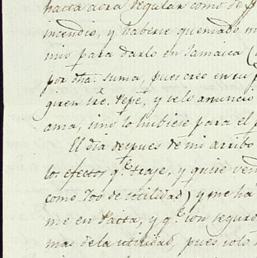 hasta aora regular como de p
incendio, y haberse quemado m
mio para darlo en Jamaica (
por dha. suma, pues cree en su p
quien sre. Pepe, y velo anuncio
ama, sino lo hubiese para el p
El dia despues de mi arribo
los efectos qe. traje, y quise ven
como 700 de utilidad) y me ha
me en Pacta, y qe. con seguro
mas de la utilidad, pues solo